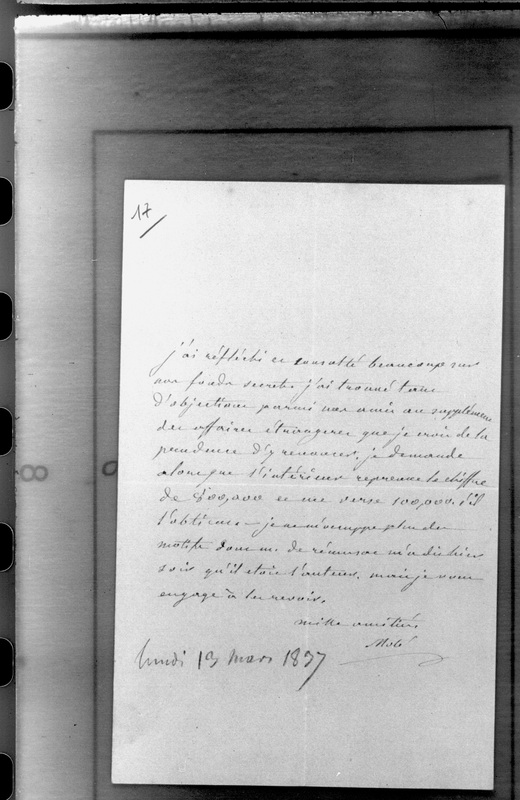 17
j'ai réfléchi et consulté beaucoup sur
nos fonds secrets j'ai trouvé tant
d'objections parmi nos amis au supplément
des affaires étrangeres que je crois de la
prudence d'y renoncer. je demande
alors que l'intérieur reprenne le chiffre
de 800,000 et me verse 100,000. s'il
l'obtient - je ne m'occuppe plus des
motifs dont m. de rémusat m'a dit hier
soir qu'il etoit l'auteur. mais je vous
engage à les revoir.
mille amitiés,
Molé
lundi 13 mars 1837
8